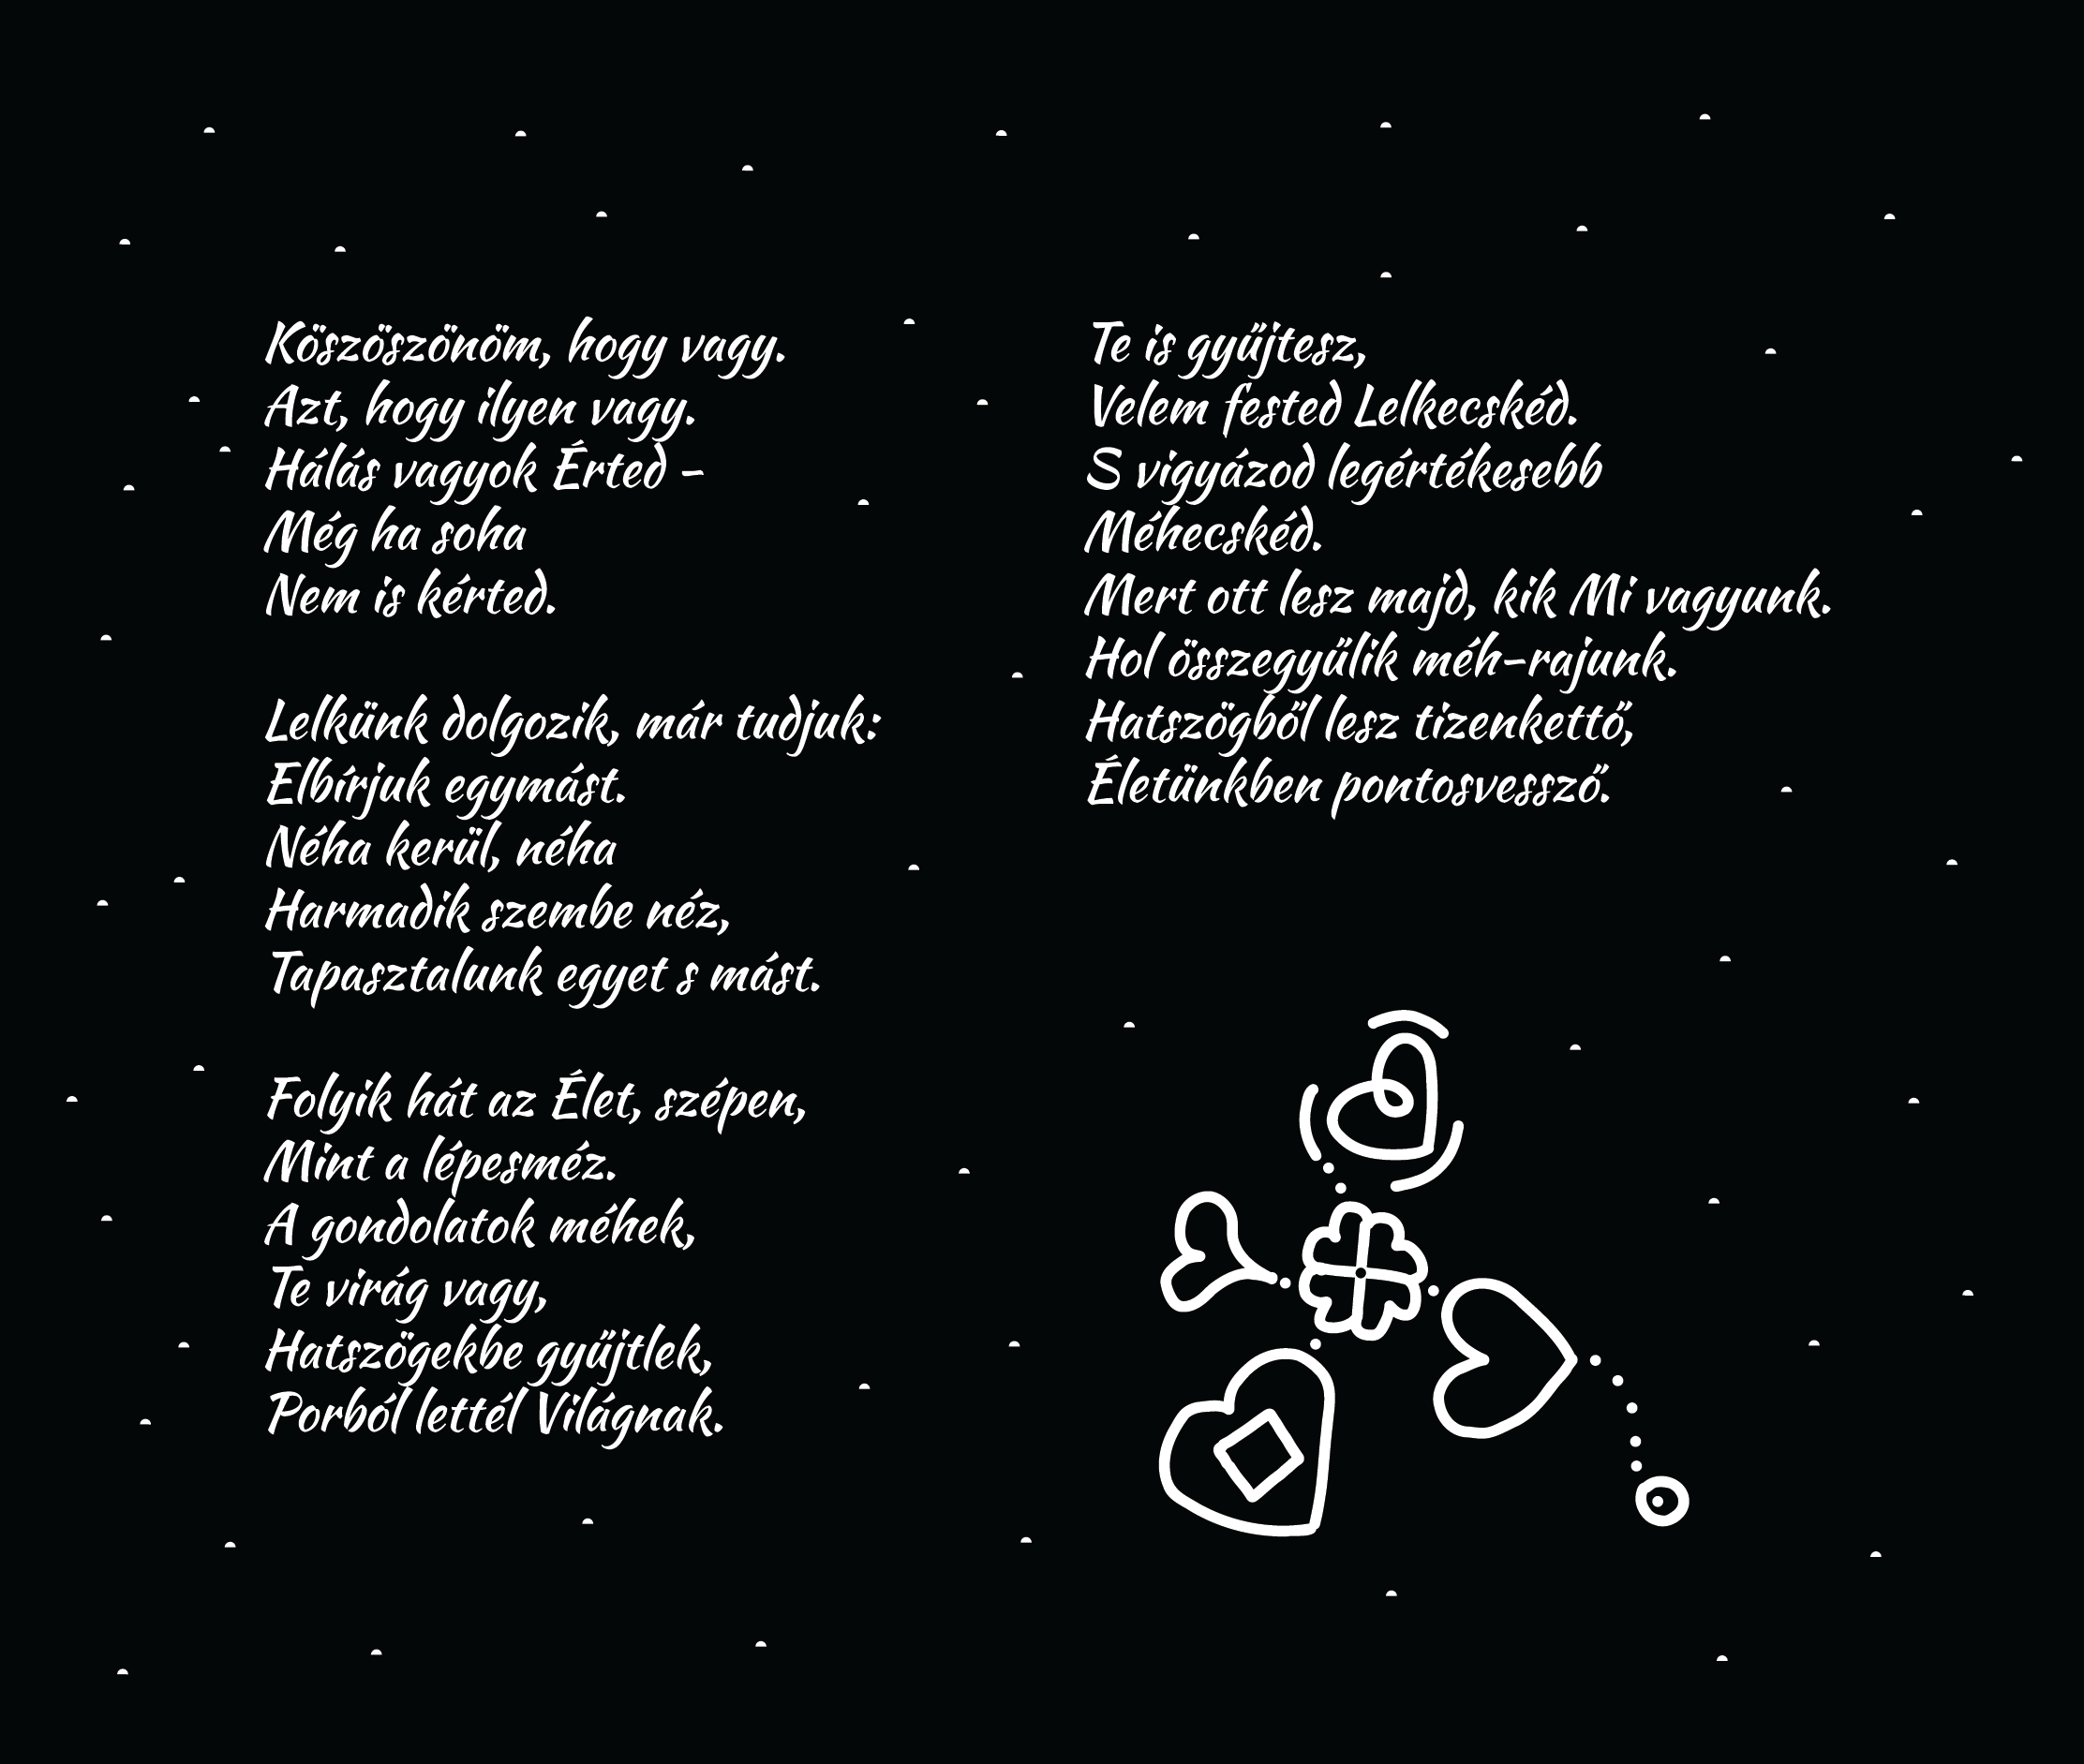 Köszöszönöm, hogy vagy.
Azt, hogy ilyen vagy.
Hálás vagyok Érted –
Még ha soha
Nem is kérted.
Lelkünk dolgozik, már tudjuk:
Elbírjuk egymást.
Néha kerül, néha
Harmadik szembe néz,
Tapasztalunk egyet s mást.
Folyik hát az Élet, szépen,
Mint a lépesméz.
A gondolatok méhek,
Te virág vagy,
Hatszögekbe gyűjtlek,
Porból lettél Világnak.
Te is gyűjtesz,
Velem fested Lelkecskéd.
S vigyázod legértékesebb
Méhecskéd.
Mert ott lesz majd, kik Mi vagyunk.
Hol összegyűlik méh-rajunk.
Hatszögből lesz tizenkettő,
Életünkben pontosvessző.